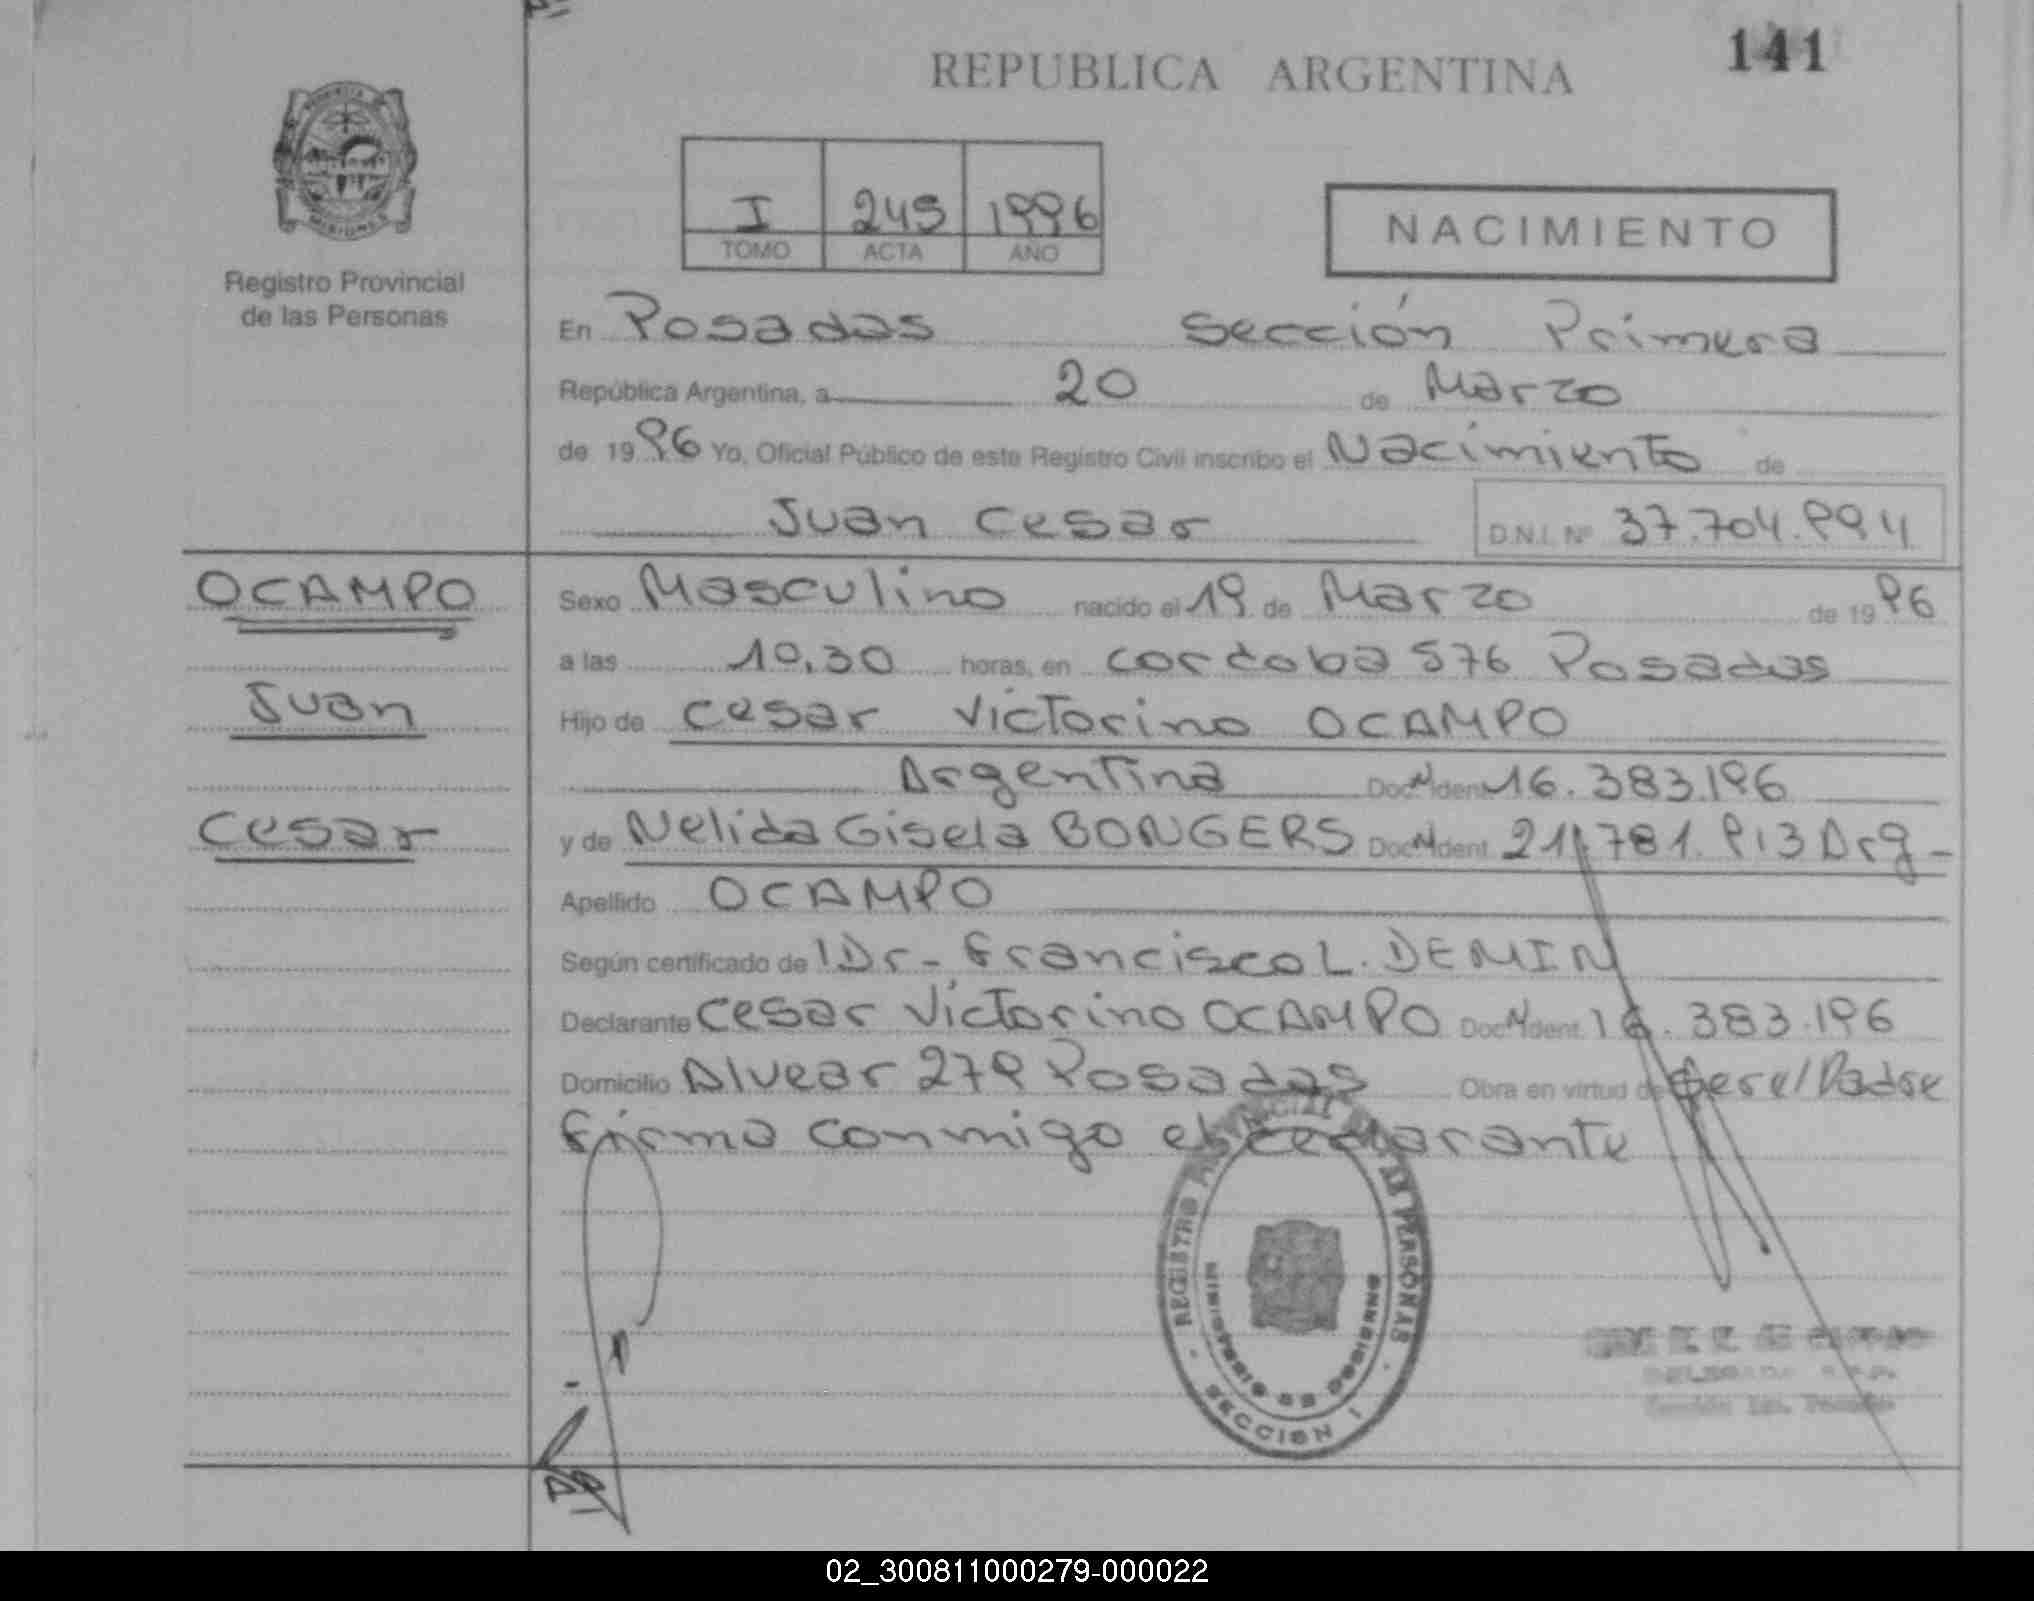 141
REPUBLICA ARGENTINA
PROVINCIA DE MISIONES
Registro Provincial
de las Personas
I 245 1996
TOMO ACTA AÑO
NACIMIENTO
En Posadas Sección Primera
República Argentina, a 20 de Marzo
de 1996 Yo, Oficial Público de este Registro Civil inscribo el Nacimiento de
Juan Cesar D.N.I. Nº 37.704.994
OCAMPO
Juan
Cesar
Sexo Masculino nacido el 19 de Marzo de 1996
a las 10,30 horas, en Cordoba 576 Posadas
Hijo de Cesar Victorino OCAMPO
Argentina Doc. Ident. 16.383.196
y de Nelida Gisela BONGERS Doc. Ident. 21.781.913 Arg-
Apellido OCAMPO
Según certificado de Dr- Francisco L. DEMIN
Declarante Cesar Victorino OCAMPO Doc. Ident. 16.383.196
Domicilio Alvear 279 Posadas Obra en virtud de Ser el Padre
Firma conmigo el declarante
REGISTRO PROVINCIAL DE LAS PERSONAS
MINISTERIO DE GOBIERNO
SECCION I
02_300811000279-000022